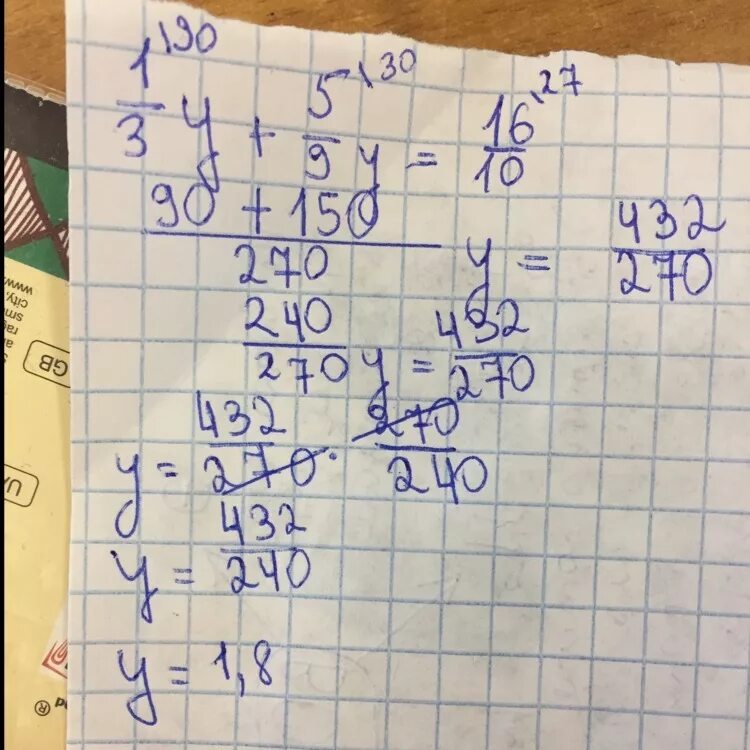 1/3\90 y + 5/9\30 y = 16/10\27
(90 + 150)/270 y = 432/270
240/270 y = 432/270
y = 432/270 · 270/240
y = 432/240
y = 1,8
GB
www
city,
UA
®